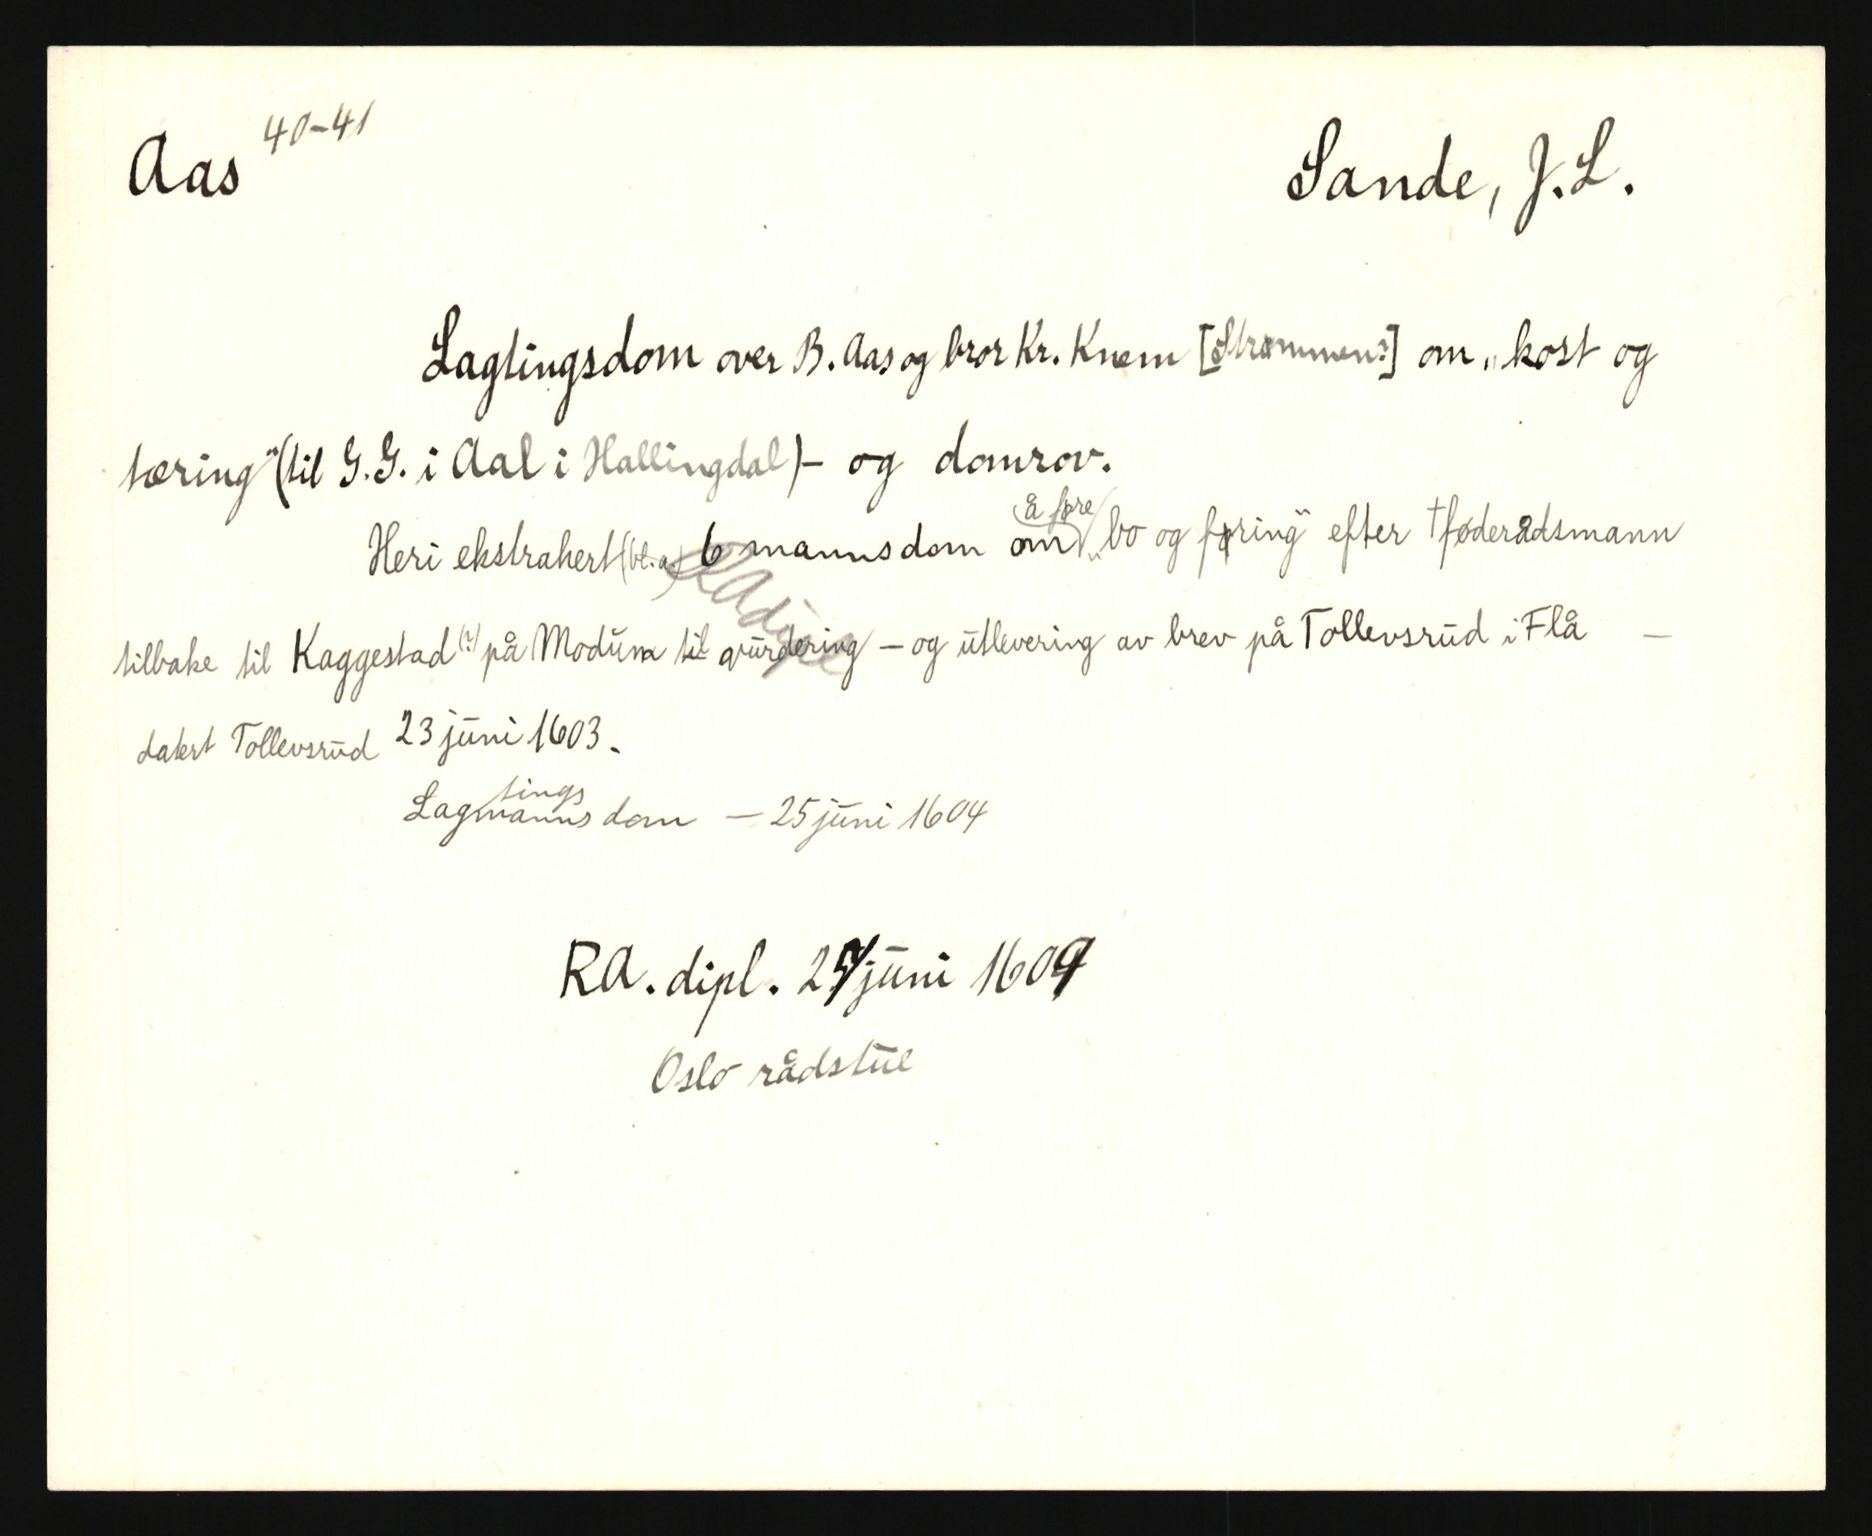 Aas 40-41
Sande, J.L.
Lagtingsdom over B. Aas og bror Kr. Knem [Strømmen?] om „kost og
tæring” (til G.G. i Aal i Hallingdal) – og domrov.
å føre
Heri ekstrahert (bl.a.) 6 mannsdom om „bo og føring” efter †føderådsmann
RA dipl
tilbake til Kaggestad (?) på Modum til vurdering – og utlevering av brev på Tollevsrud i Flå –
datert Tollevsrud 23 juni 1603.
tings
Lagmannsdom – 25 juni 1604
RA. dipl. juni 1604
Oslo rådstue